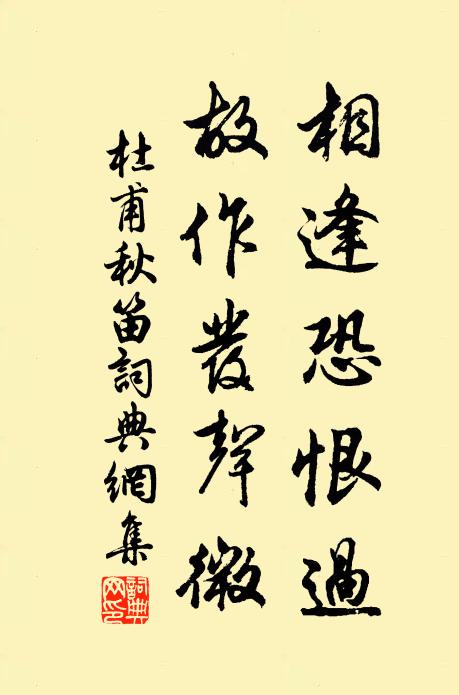 相逢恐恨過
故作發聲微
杜甫秋笛詞典網集
詞典網印